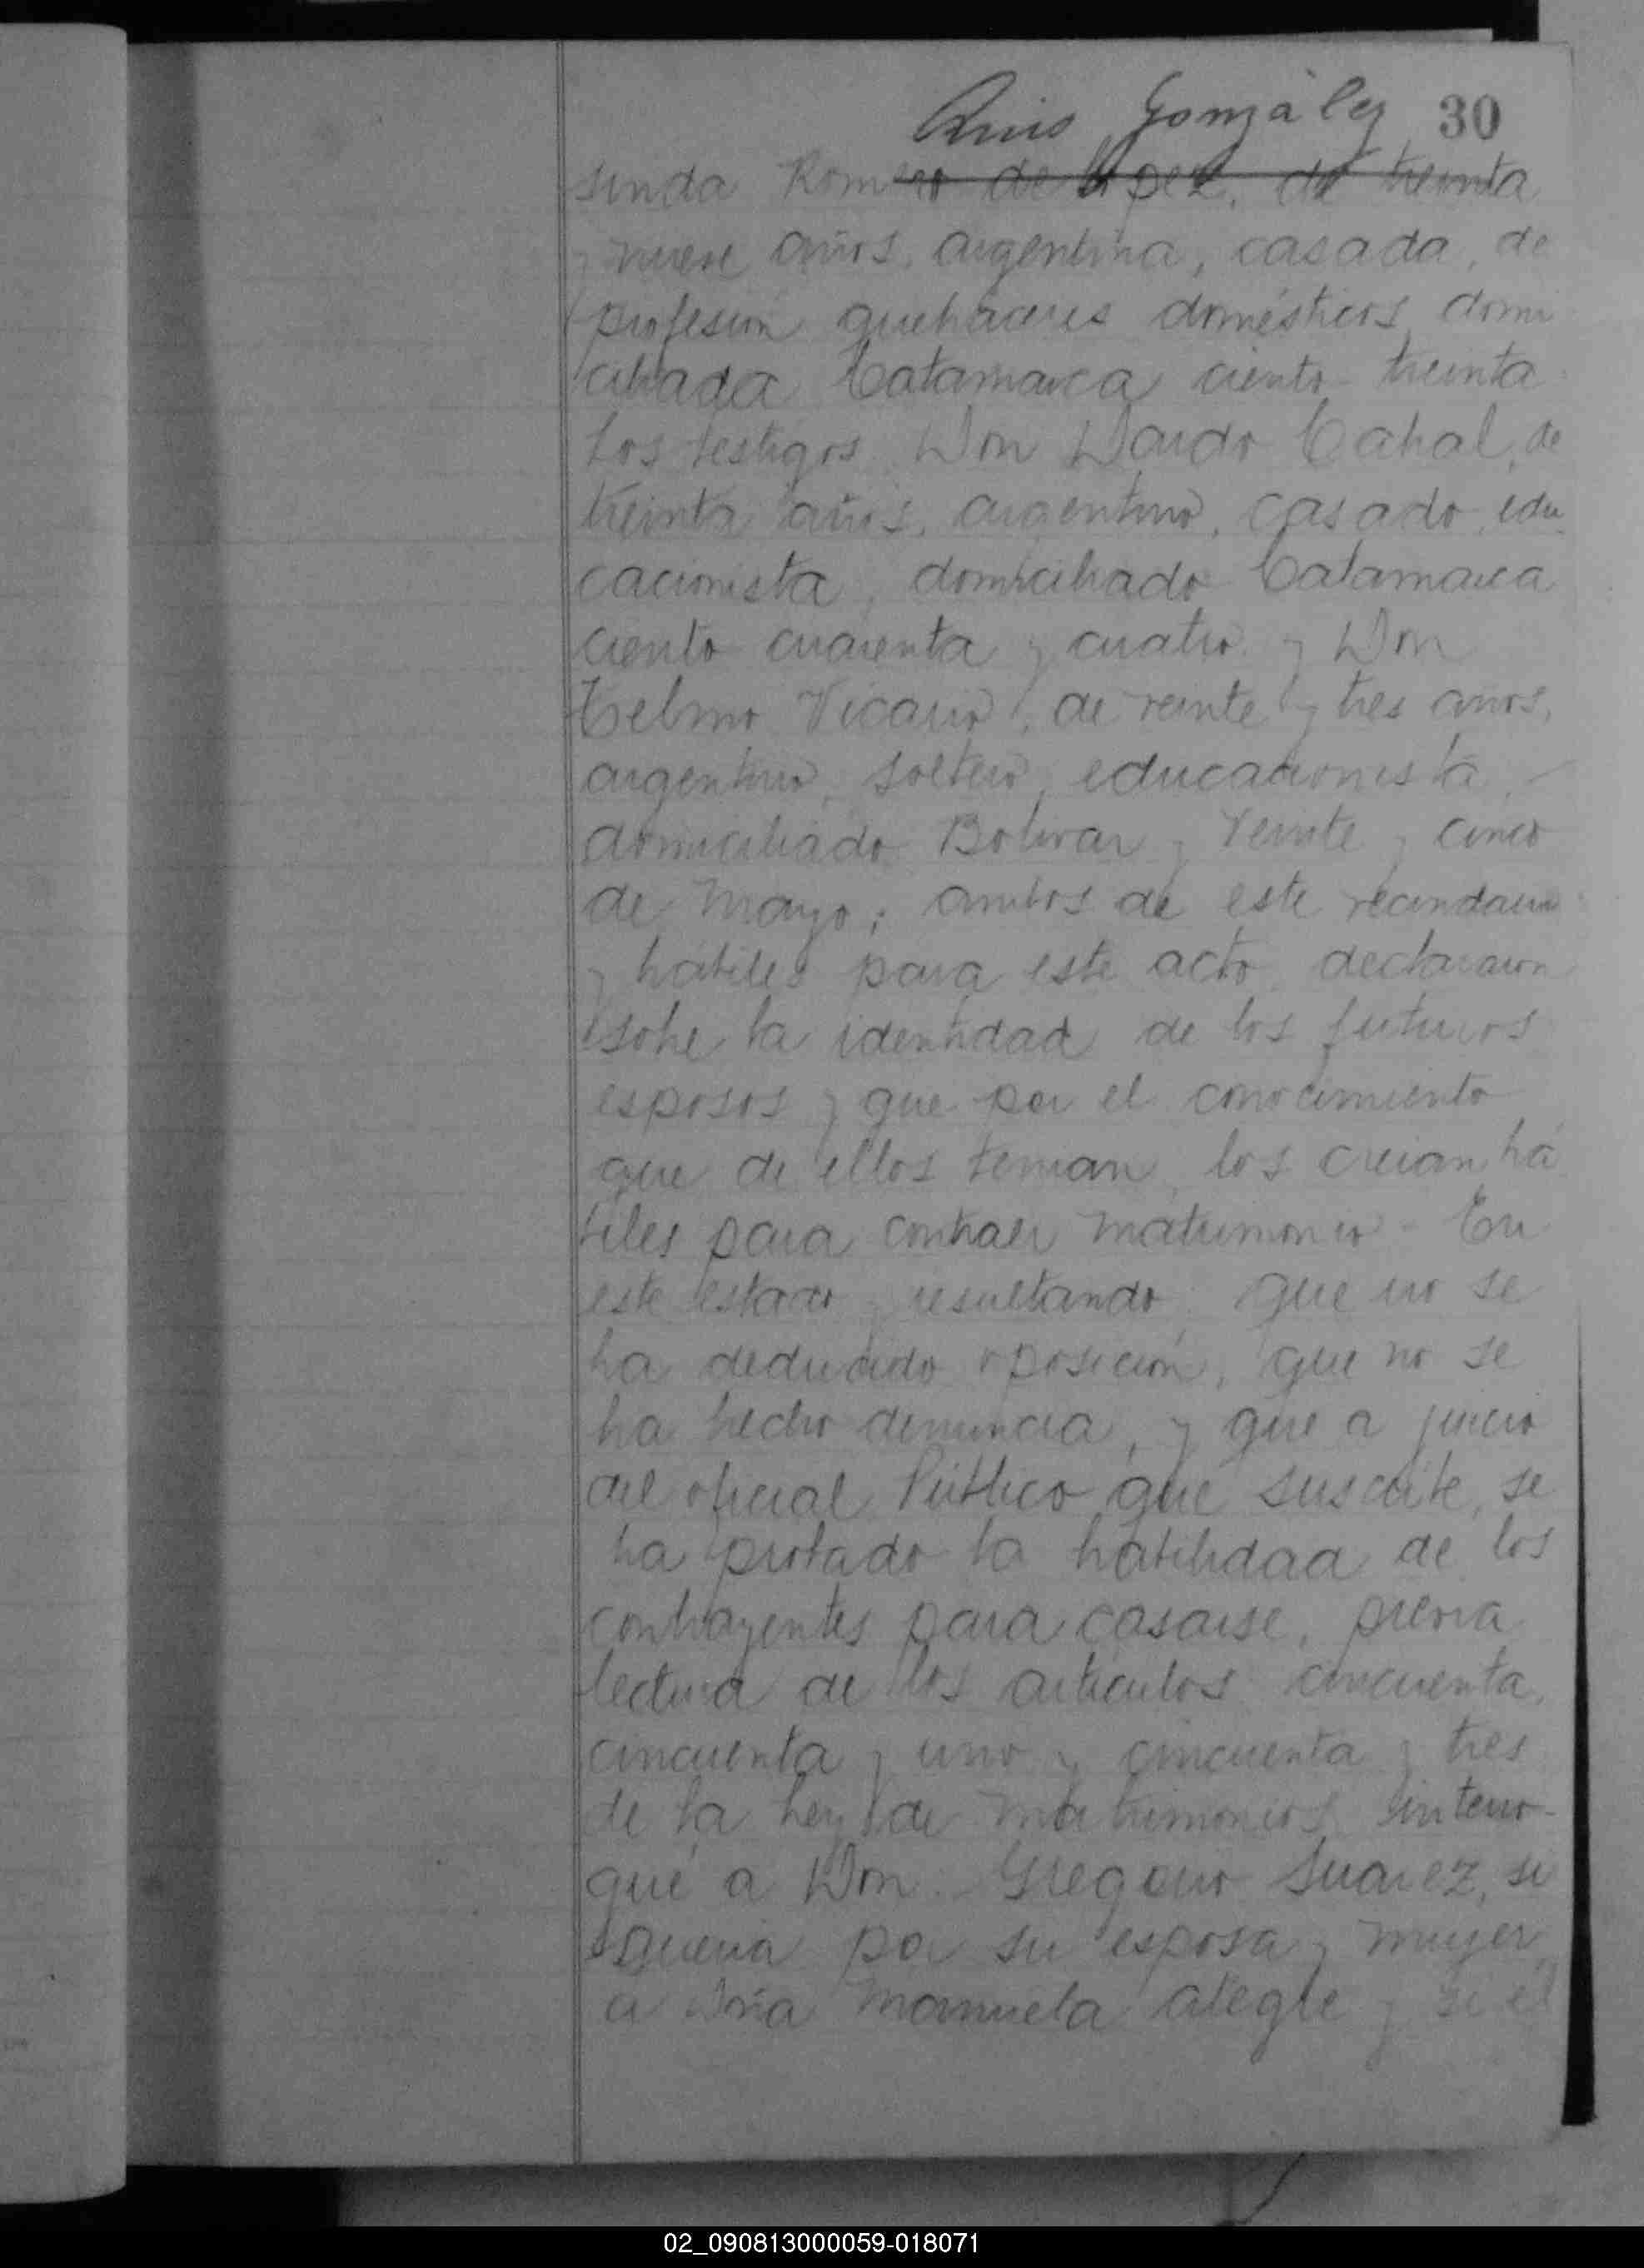 Luis González 30
sinda Romero de López, de treinta
y nueve años, argentina, casada, de
profesión quehaceres domésticos domi
ciliada Catamarca ciento treinta
Los testigos Don Dardo Cabal, de
treinta años, argentino, casado, edu
cacionista, domiciliado Catamarca
ciento cuarenta y cuatro y Don
Telmo Vicario, de veinte y tres años,
argentino, soltero, educacionista,
domiciliado Bolívar y Veinte y cinco
de Mayo; ambos de este vecindario
y hábiles para este acto, declararon
sobre la identidad de los futuros
esposos y que por el conocimiento
que de ellos tenian, los creian há
biles para contraer matrimonio - En
este estado y resultando; que no se
ha deducido oposición, que no se
ha hecho denuncia, y que a juicio
del oficial Público que suscribe, se
ha probado la habilidad de los
contrayentes para casarse, previa
lectura de los artículos cincuenta,
cincuenta y uno y cincuenta y tres
de la Ley de matrimonios interro-
gué a Don Gregorio Suarez, si
queria por su esposa y mujer
a Doña Manuela Alegre y si él
02_090813000059-018071